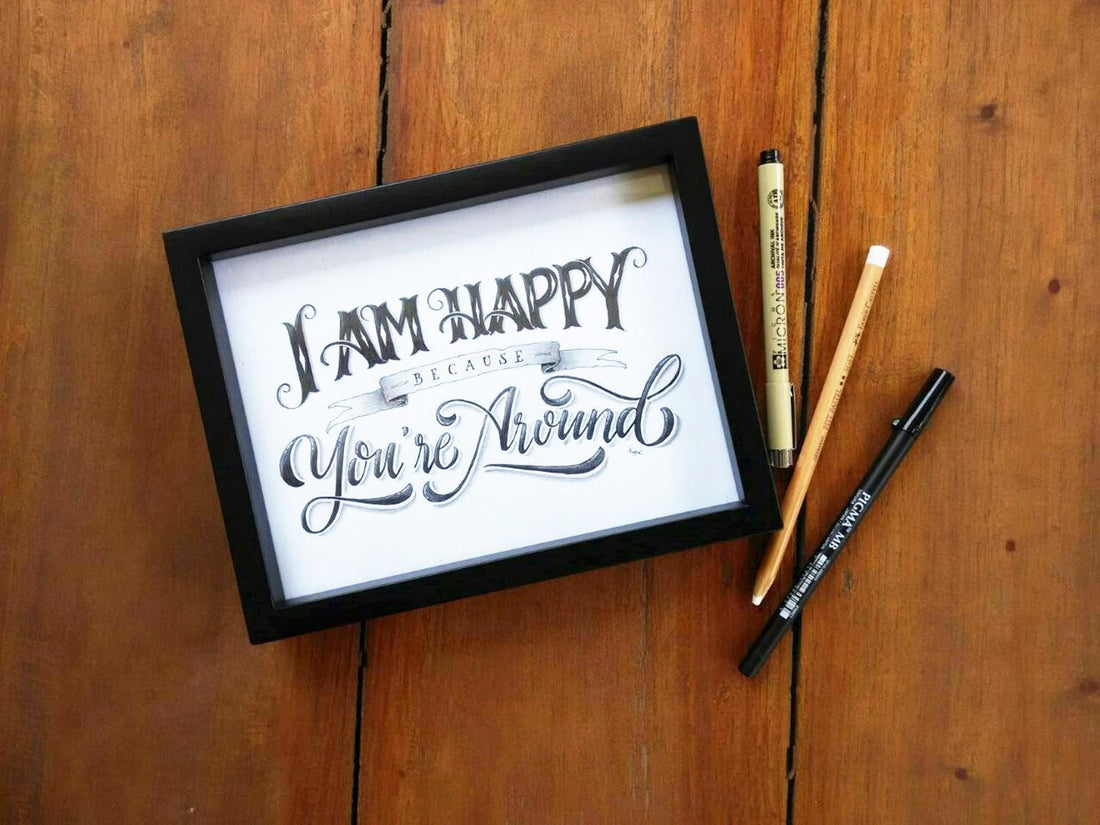 I AM HAPPY
BECAUSE
You're Around
ARCHIVAL INK
MICRON 005
PIGMA MB